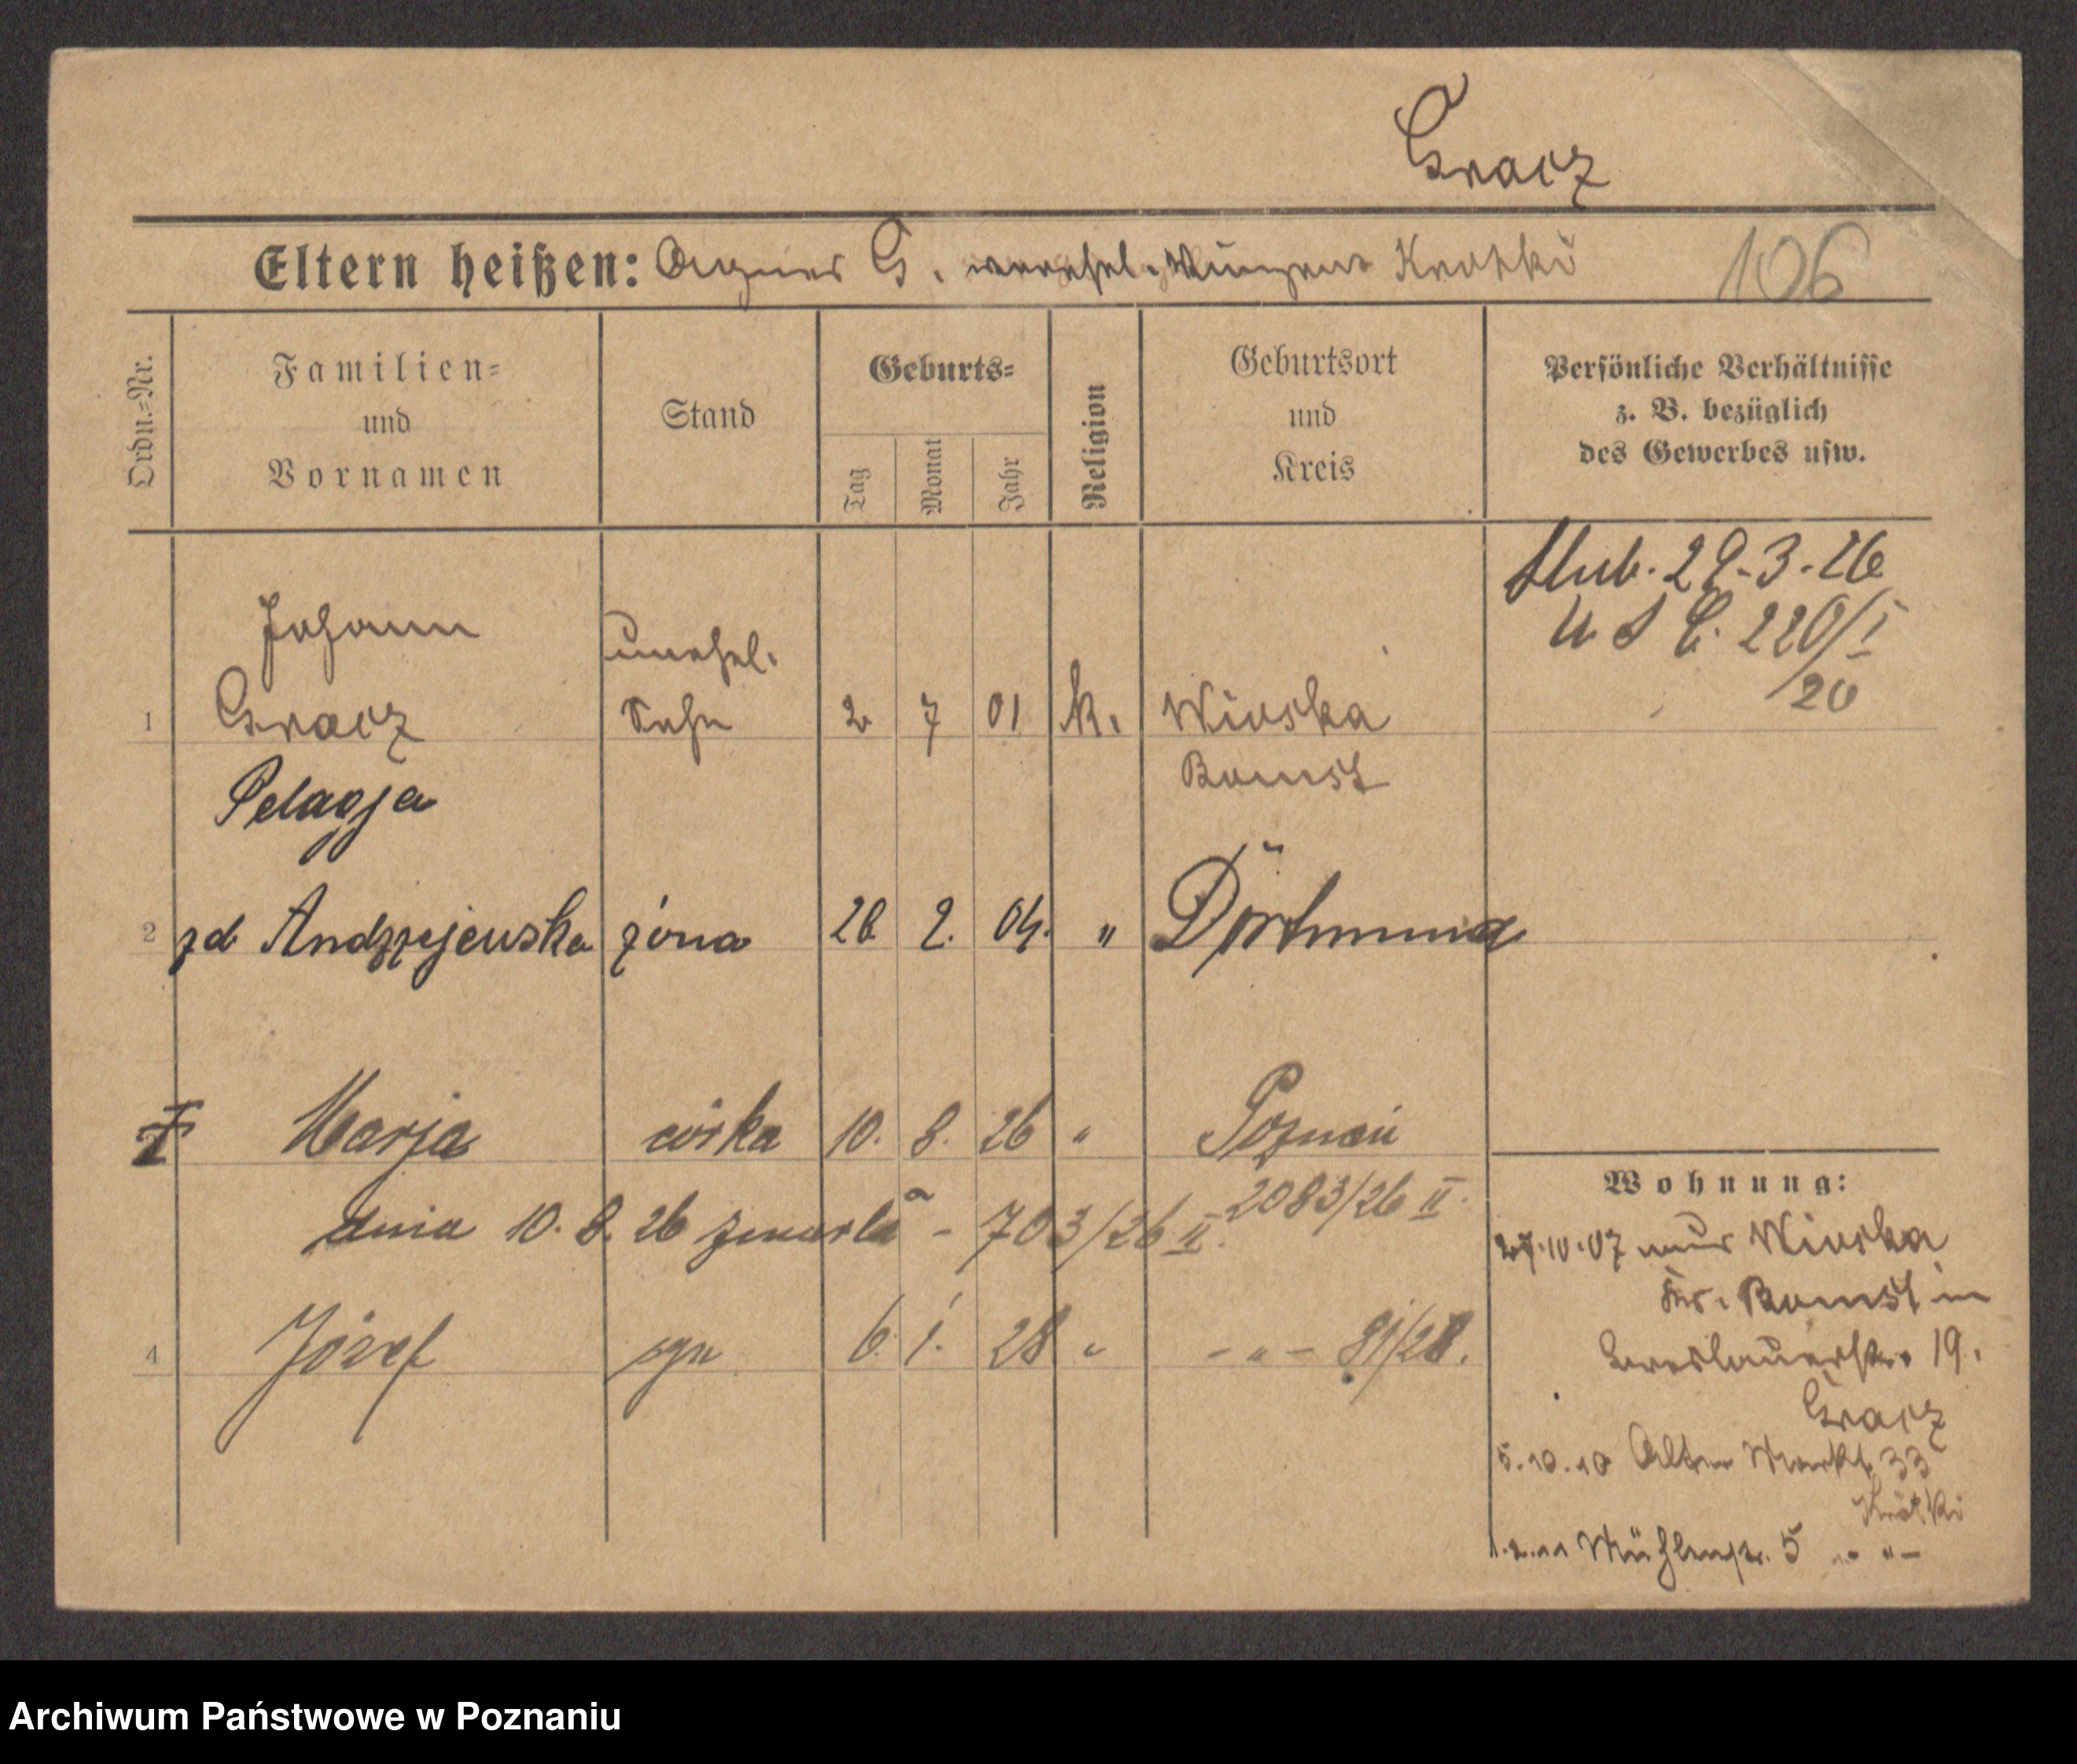 Gracz
Eltern heißen: Agnes G. verehel. Vinzent Krotki 106
Ordn.-Nr.
Familien-
und
Vornamen
Stand
Geburts-
Tag
Monat
Jahr
Religion
Geburtsort
und
Kreis
Persönliche Verhältnisse
z. B. bezüglich
des Gewerbes usw.
ślub. 29.3.26
U S C. 220/I
26
Johann unehel.
1 Gracz Sohn 2 7 01 k. Wioska
Bomst
Pelagja
2 zd Andrzejewska żona 28 2. 04. " Dortmund
Marja córka 10. 8. 26 " Poznań
2083/26 II.
dnia 10. 8. 26 zmarła - 703/26 II.
4 Józef syn 6. 1. 28 " - " - 81/28.
Wohnung:
27.10.07 aus Wioska
Krs. Bomst in
Breslauerstr. 19.
Gracz
5.10.10 Alter Markt 33
Krotki
1.2.11 Mühlenstr. 5 - " -